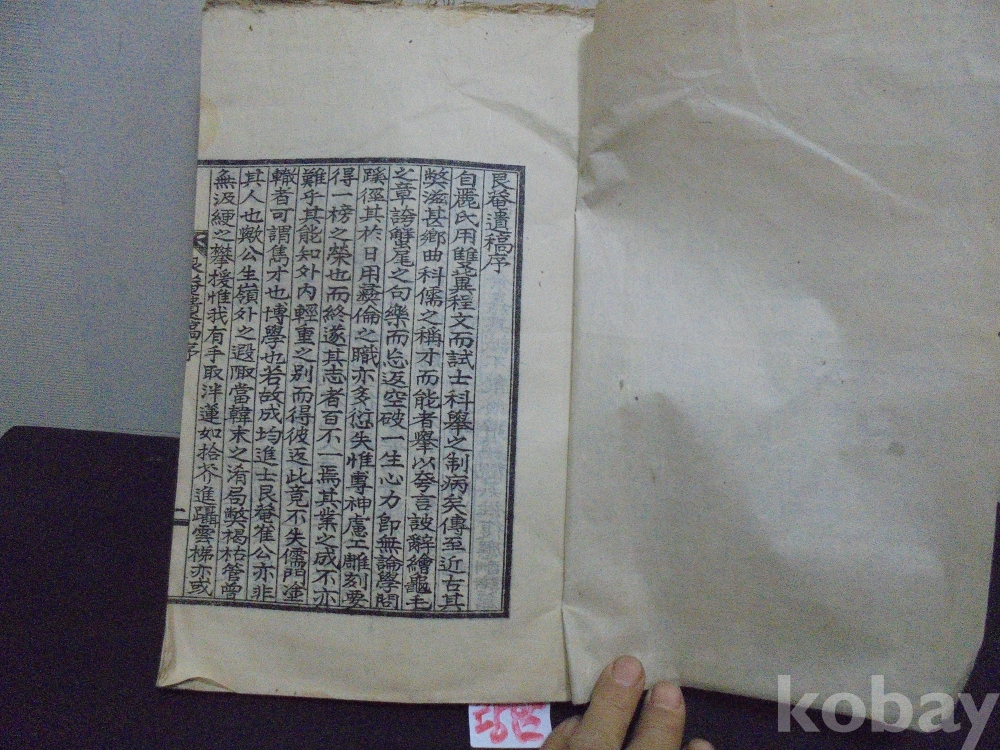 艮菴遺稿序
自麗氏用雙冀程文而試士科擧之制病矣傳至近古其
弊滋甚鄕曲科儒之稱才而能者擧以夸言詖辭繪龜毛
之章謗蟹尾之句樂而忘返空破一生心力卽無論學問
蹊徑其於日用彜倫之職亦多愆失惟專神慮工雕刻要
得一榜之榮也而終遂其志者百不一焉其業之成不亦
難乎其能知外內輕重之別而得彼返此竟不失儒門塗
轍者可謂雋才也博學也若故成均進士艮菴崔公亦非
其人也歟公生嶺外之遐陬當韓末之淆局獘褐枯管曾
無汲綆之攀援惟我有手取泮蓮如拾芥進躡雲梯亦或
艮菴遺稿序
一
kobay